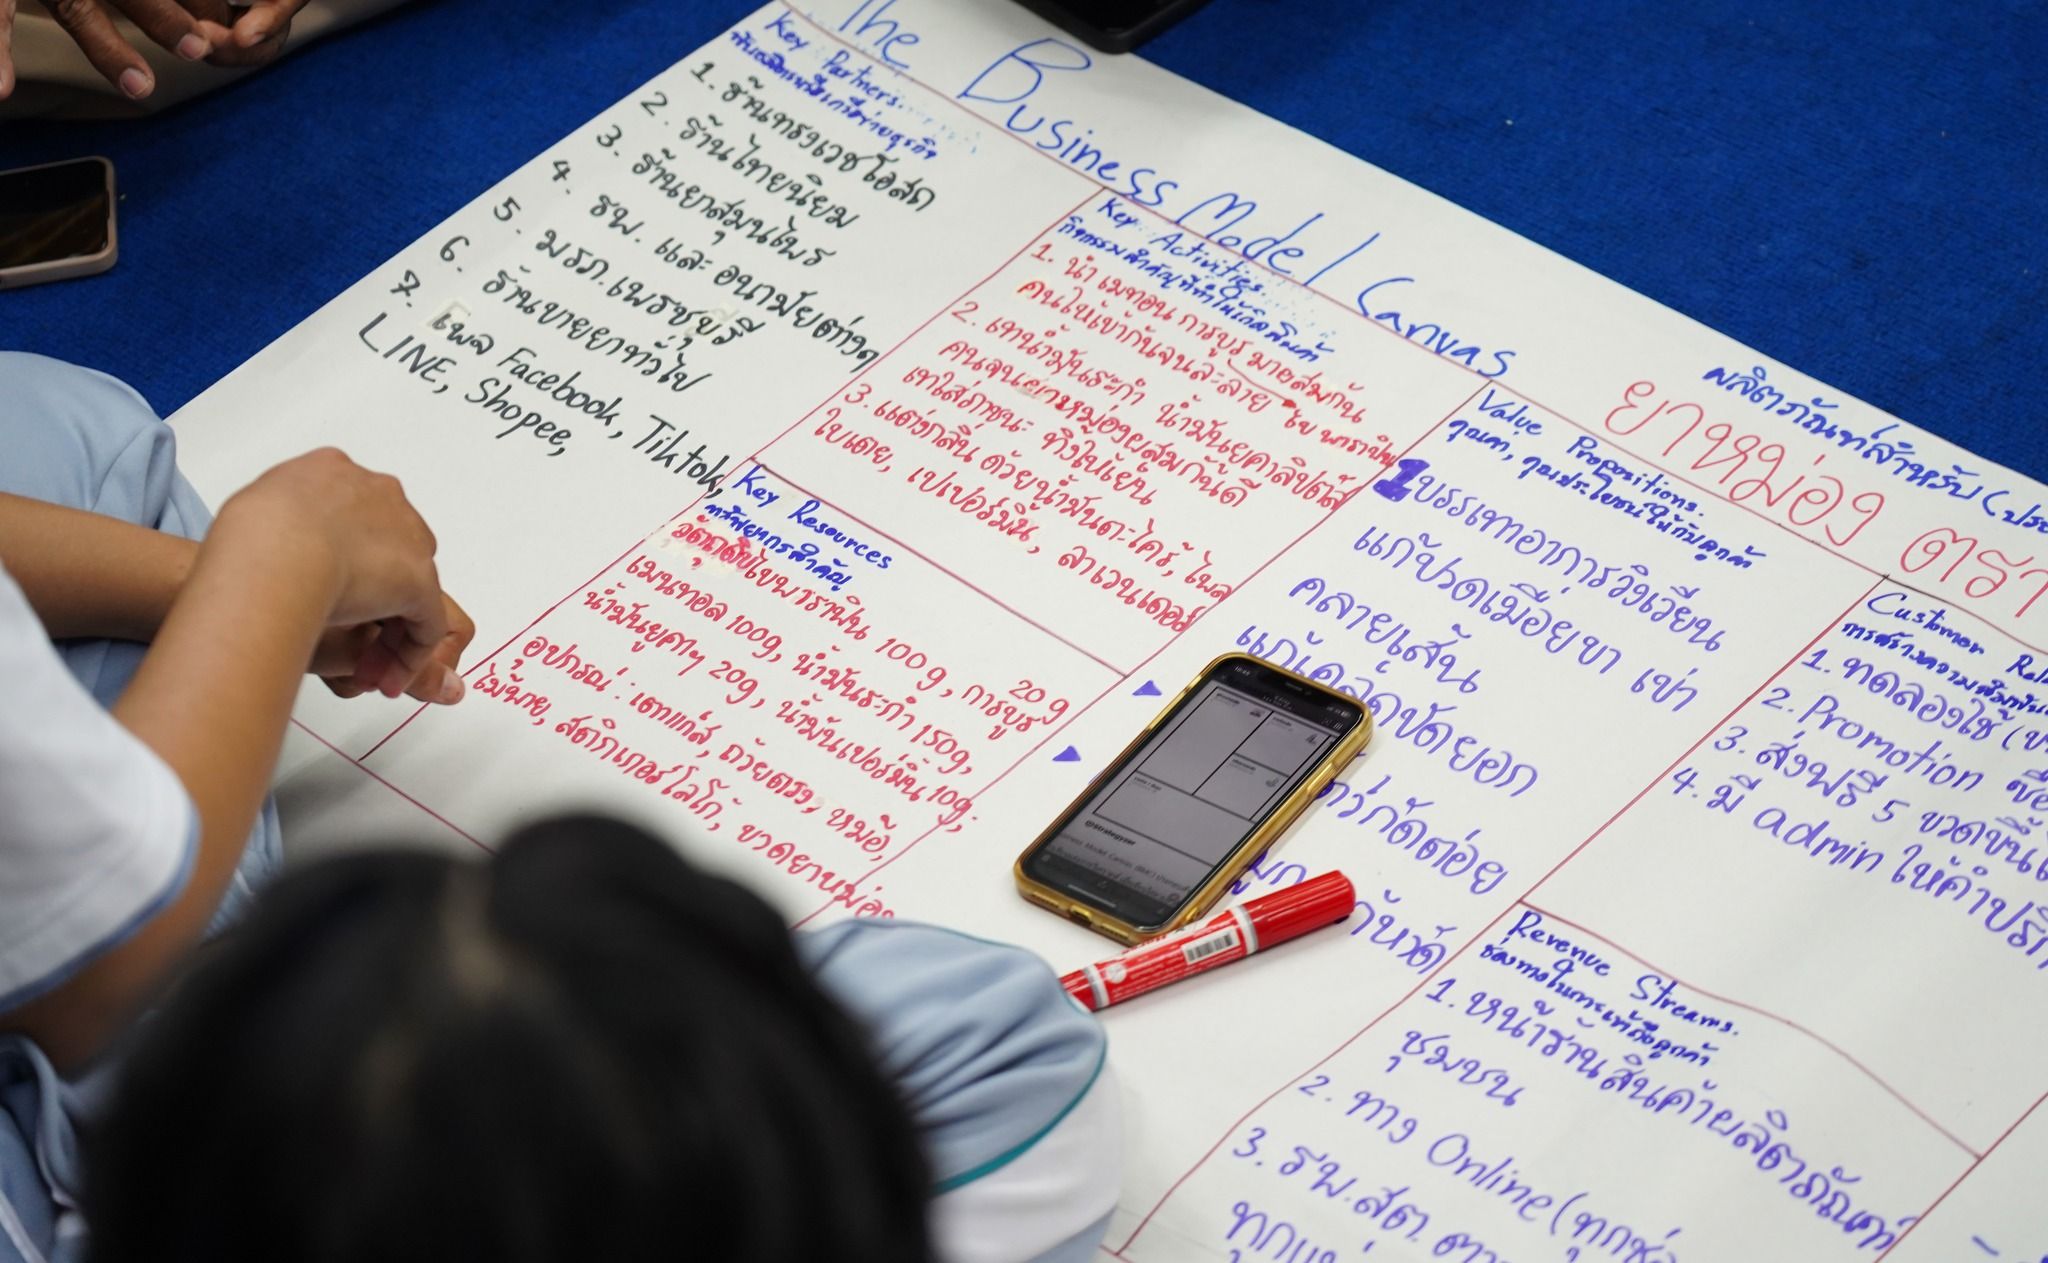 The Business Model Canvas
ผลิตภัณฑ์สำหรับ
ยาหม่อง ตรา
Key Partners.
พันธมิตรหรือเครือข่ายธุรกิจ
1. ร้านทรงเวชโอสถ
2. ร้านไทยนิยม
3. ร้านยาสมุนไพร
4. รพ. และ อนามัยต่างๆ
5. มรภ.เพรชบุรี
6. ร้านขายยาทั่วไป
7. เพจ Facebook, Tiktok,
LINE, Shopee,
Key Activities.
กิจกรรมสำคัญที่ทำให้เกิดสินค้า
1. นำเมทอน การบูร มายสมกัน
คนให้เข้ากันจนละลาย
2. เทน้ำมันระกำ น้ำมันยูคาลิปตัส
คนจนยาหม่องผสมกันดี
เทใส่ภาชนะ ทิ้งให้เย็น
3. แต่งกลิ่น ด้วยน้ำมันตะไคร้, ไพล
ใบเตย, เปเปอร์มิ้น, ลาเวนเดอร์
Key Resources
ทรัพยากรสำคัญ
วัตถุดิบไขพาราฟิน 100 g, การบูร 20 g
เมนทอล 100g, น้ำมันระกำ 150g,
น้ำมันยูคาฯ 20g, น้ำมันเปอร์มิ้น 10g,
อุปกรณ์ : เตาแก๊ส, ถ้วยตวง, หม้อ,
ไม้พาย, สติกเกอร์โลโก้, ขวดยาหม่อง
Value Propositions.
คุณค่า, คุณประโยชน์ให้กับลูกค้า
1 บรรเทอาการวิงเวียน
แก้ปวดเมื่อยขา เข่า
คลายเส้น
แก้เคล็ดขัดยอก
กัดต่อย
Customer
1. ทดลองใช้
2. Promotion
3. ส่งฟรี 5 ขวดขึ้น
4. มี admin ให้คำปรึก
Revenue Streams.
1. หน้าร้านสินค้าผลิตภัณฑ์
ชุมชน
2. ทาง Online
3. รพ.สต.
@Strategyzer